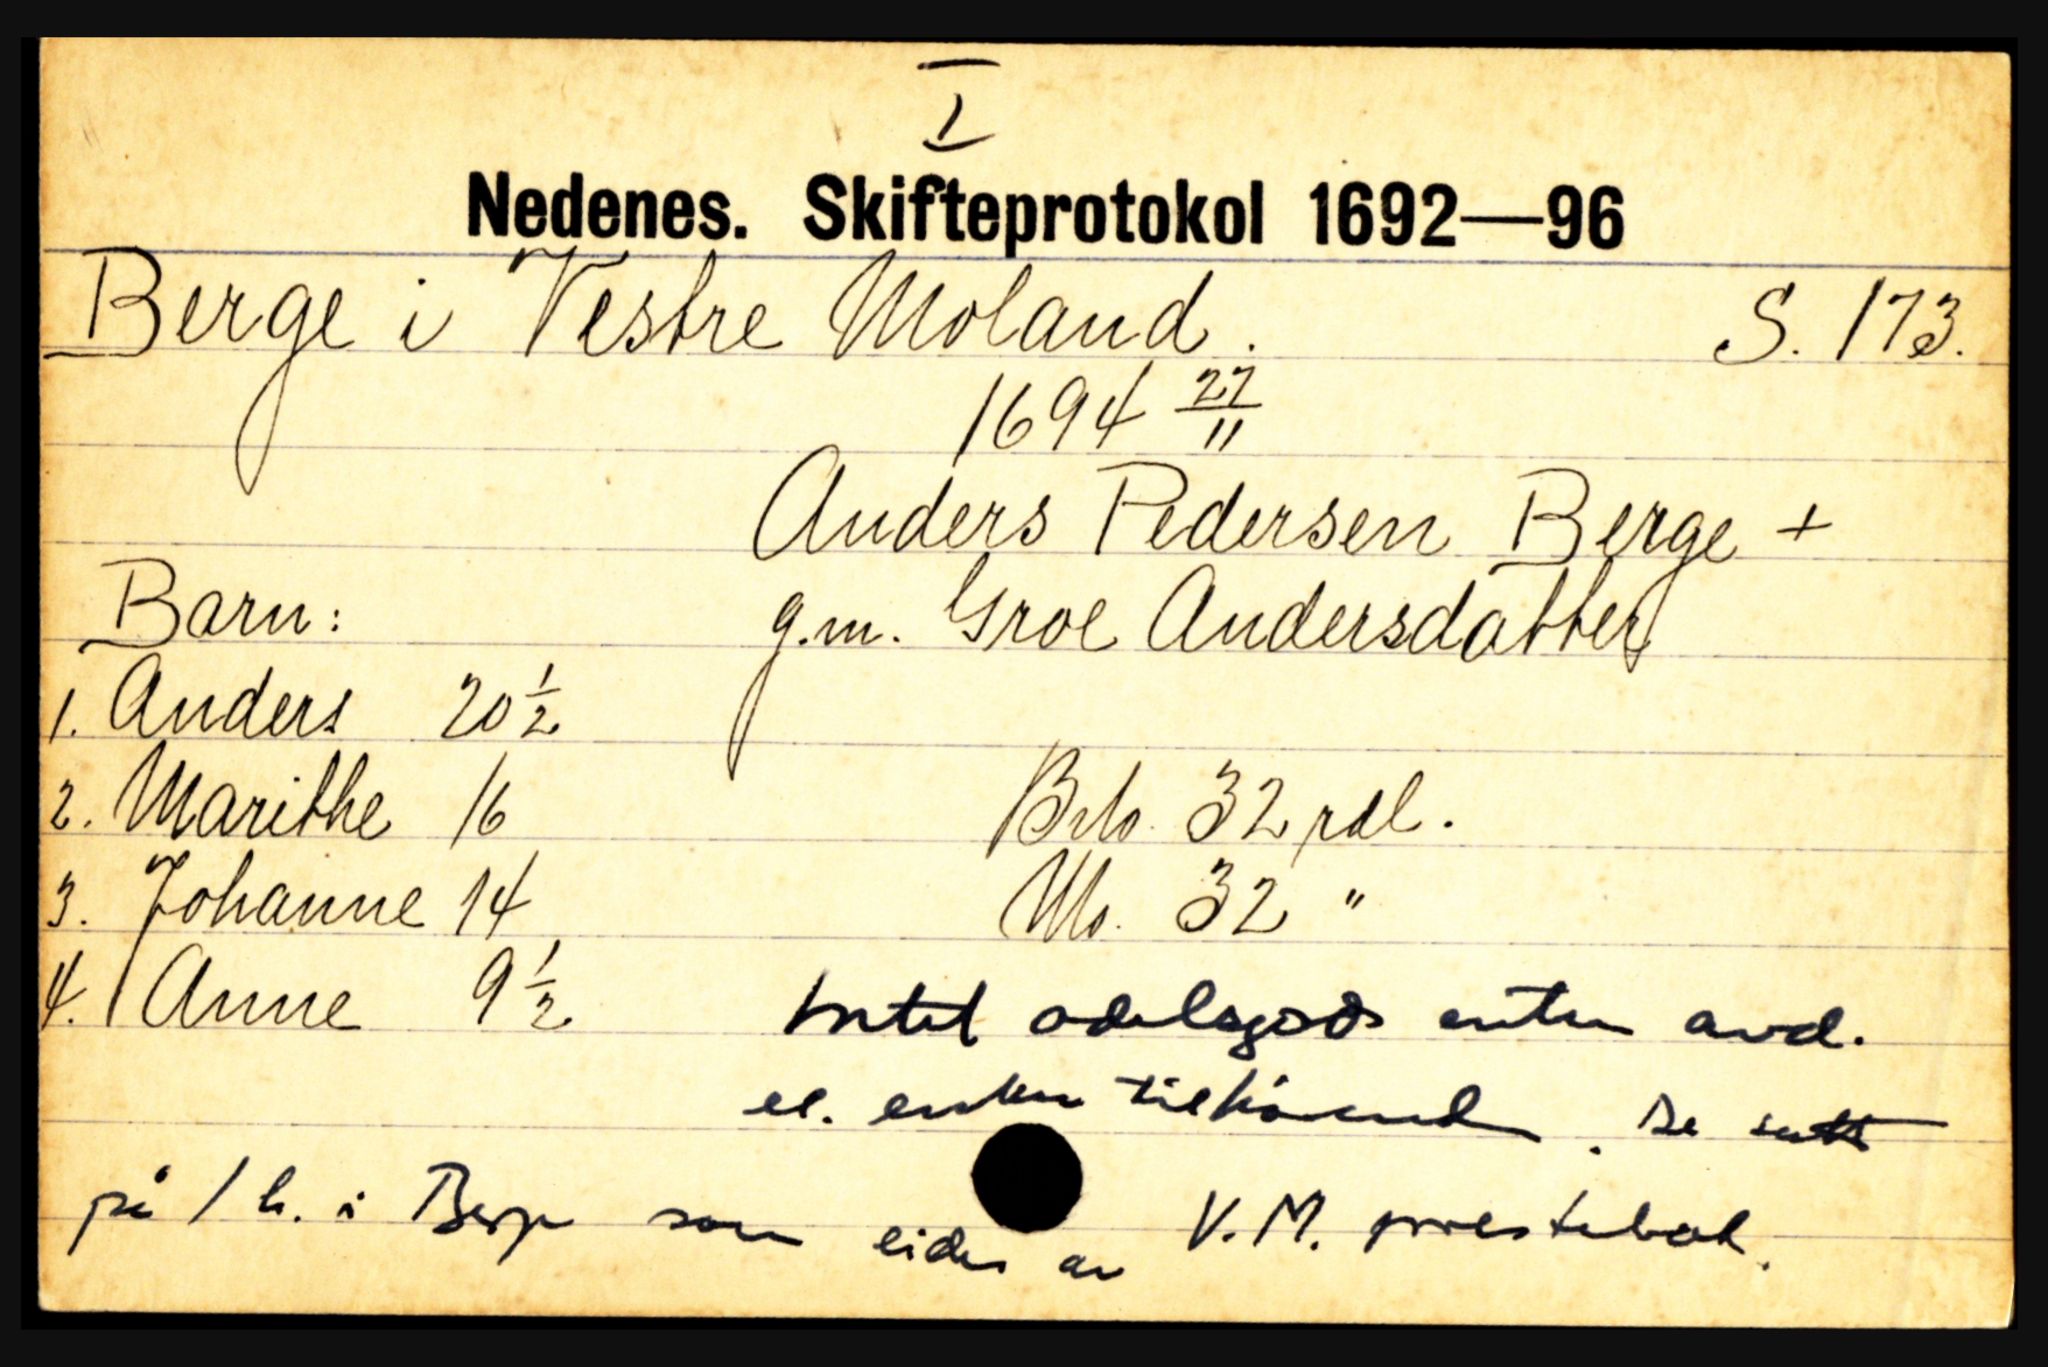 I
Nedenes. Skifteprotokol 1692—96
Berge i Vestre Moland. S. 173.
1694 27/11
Anders Pedersen Berge +
Barn: g.m. Groe Andersdatter
1. Anders 20 1/2
2. Marithe 16 Bto. 32 rdl.
3. Johanne 14 Nto. 32 "
4. Anne 9 1/2 Intet odelsgods enten avd.
el. enken tilhörend. De satt
på 1 h. i Berge som eides av V.M. prestebol.